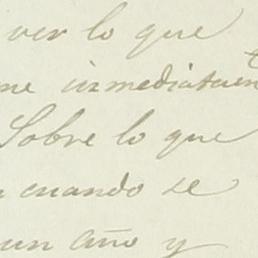 ver lo que
me inmediatamen
Sobre lo que
cuando se
un año y